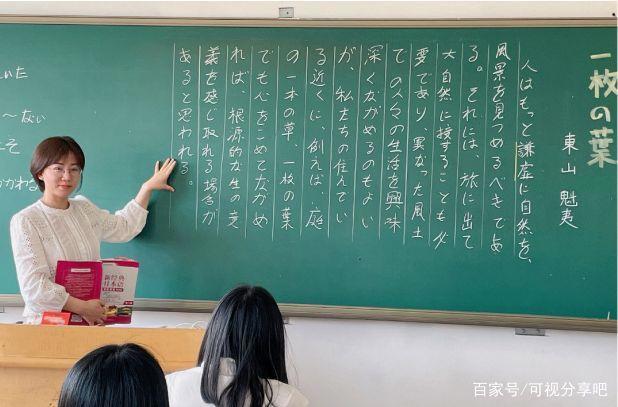 一枚の葉
東山 魁夷
人はもっと謙虚に自然を、
風景を見つめるべきであ
る。それには、旅に出て
大自然に接することも必
要であり、異なった風土
での人々の生活を興味
深くながめるのもよい
が、私たちの住んでい
る近くに、例えば、庭
の一本の草、一枚の葉
でも心をこめてながめ
れば、根源的な生の意
義を感じ取れる場合が
あると思われる。
いた
〜ない
そ
かねる
新经典
日本语
百家号/可视分享吧